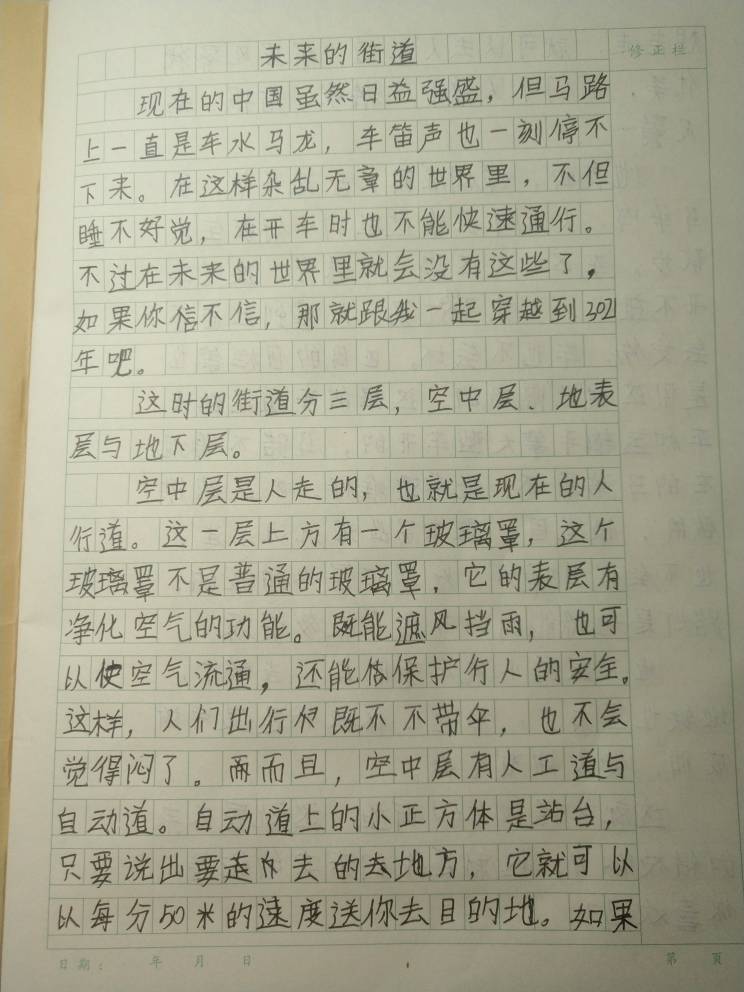 未来的街道
修正栏
现在的中国虽然日益强盛，但马路
上一直是车水马龙，车笛声也一刻停不
下来。在这样杂乱无章的世界里，不但
睡不好觉，在开车时也不能快速通行。
不过在未来的世界里就会没有这些了，
如果你信不信，那就跟我一起穿越到3021
年吧。
这时的街道分三层，空中层、地表
层与地下层。
空中层是人走的，也就是现在的人
行道。这一层上方有一个玻璃罩，这个
玻璃罩不是普通的玻璃罩，它的表层有
净化空气的功能。既能遮风挡雨，也可
以使空气流通，还能保护行人的安全。
这样，人们出行既不带伞，也不会
觉得闷了。而且，空中层有人工道与
自动道。自动道上的小正方体是站台，
只要说出要去的地方，它就可以
以每分50米的速度送你去目的地。如果
日期： 年 月 日
第 页